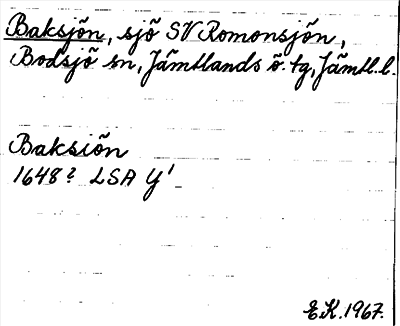 Baksjön, sjö SV Romonsjön,
Bodsjö sn, Jämtlands ö. tg, Jämtl. l.
Baksiön
1648? LSA Y¹
E.K. 1967.